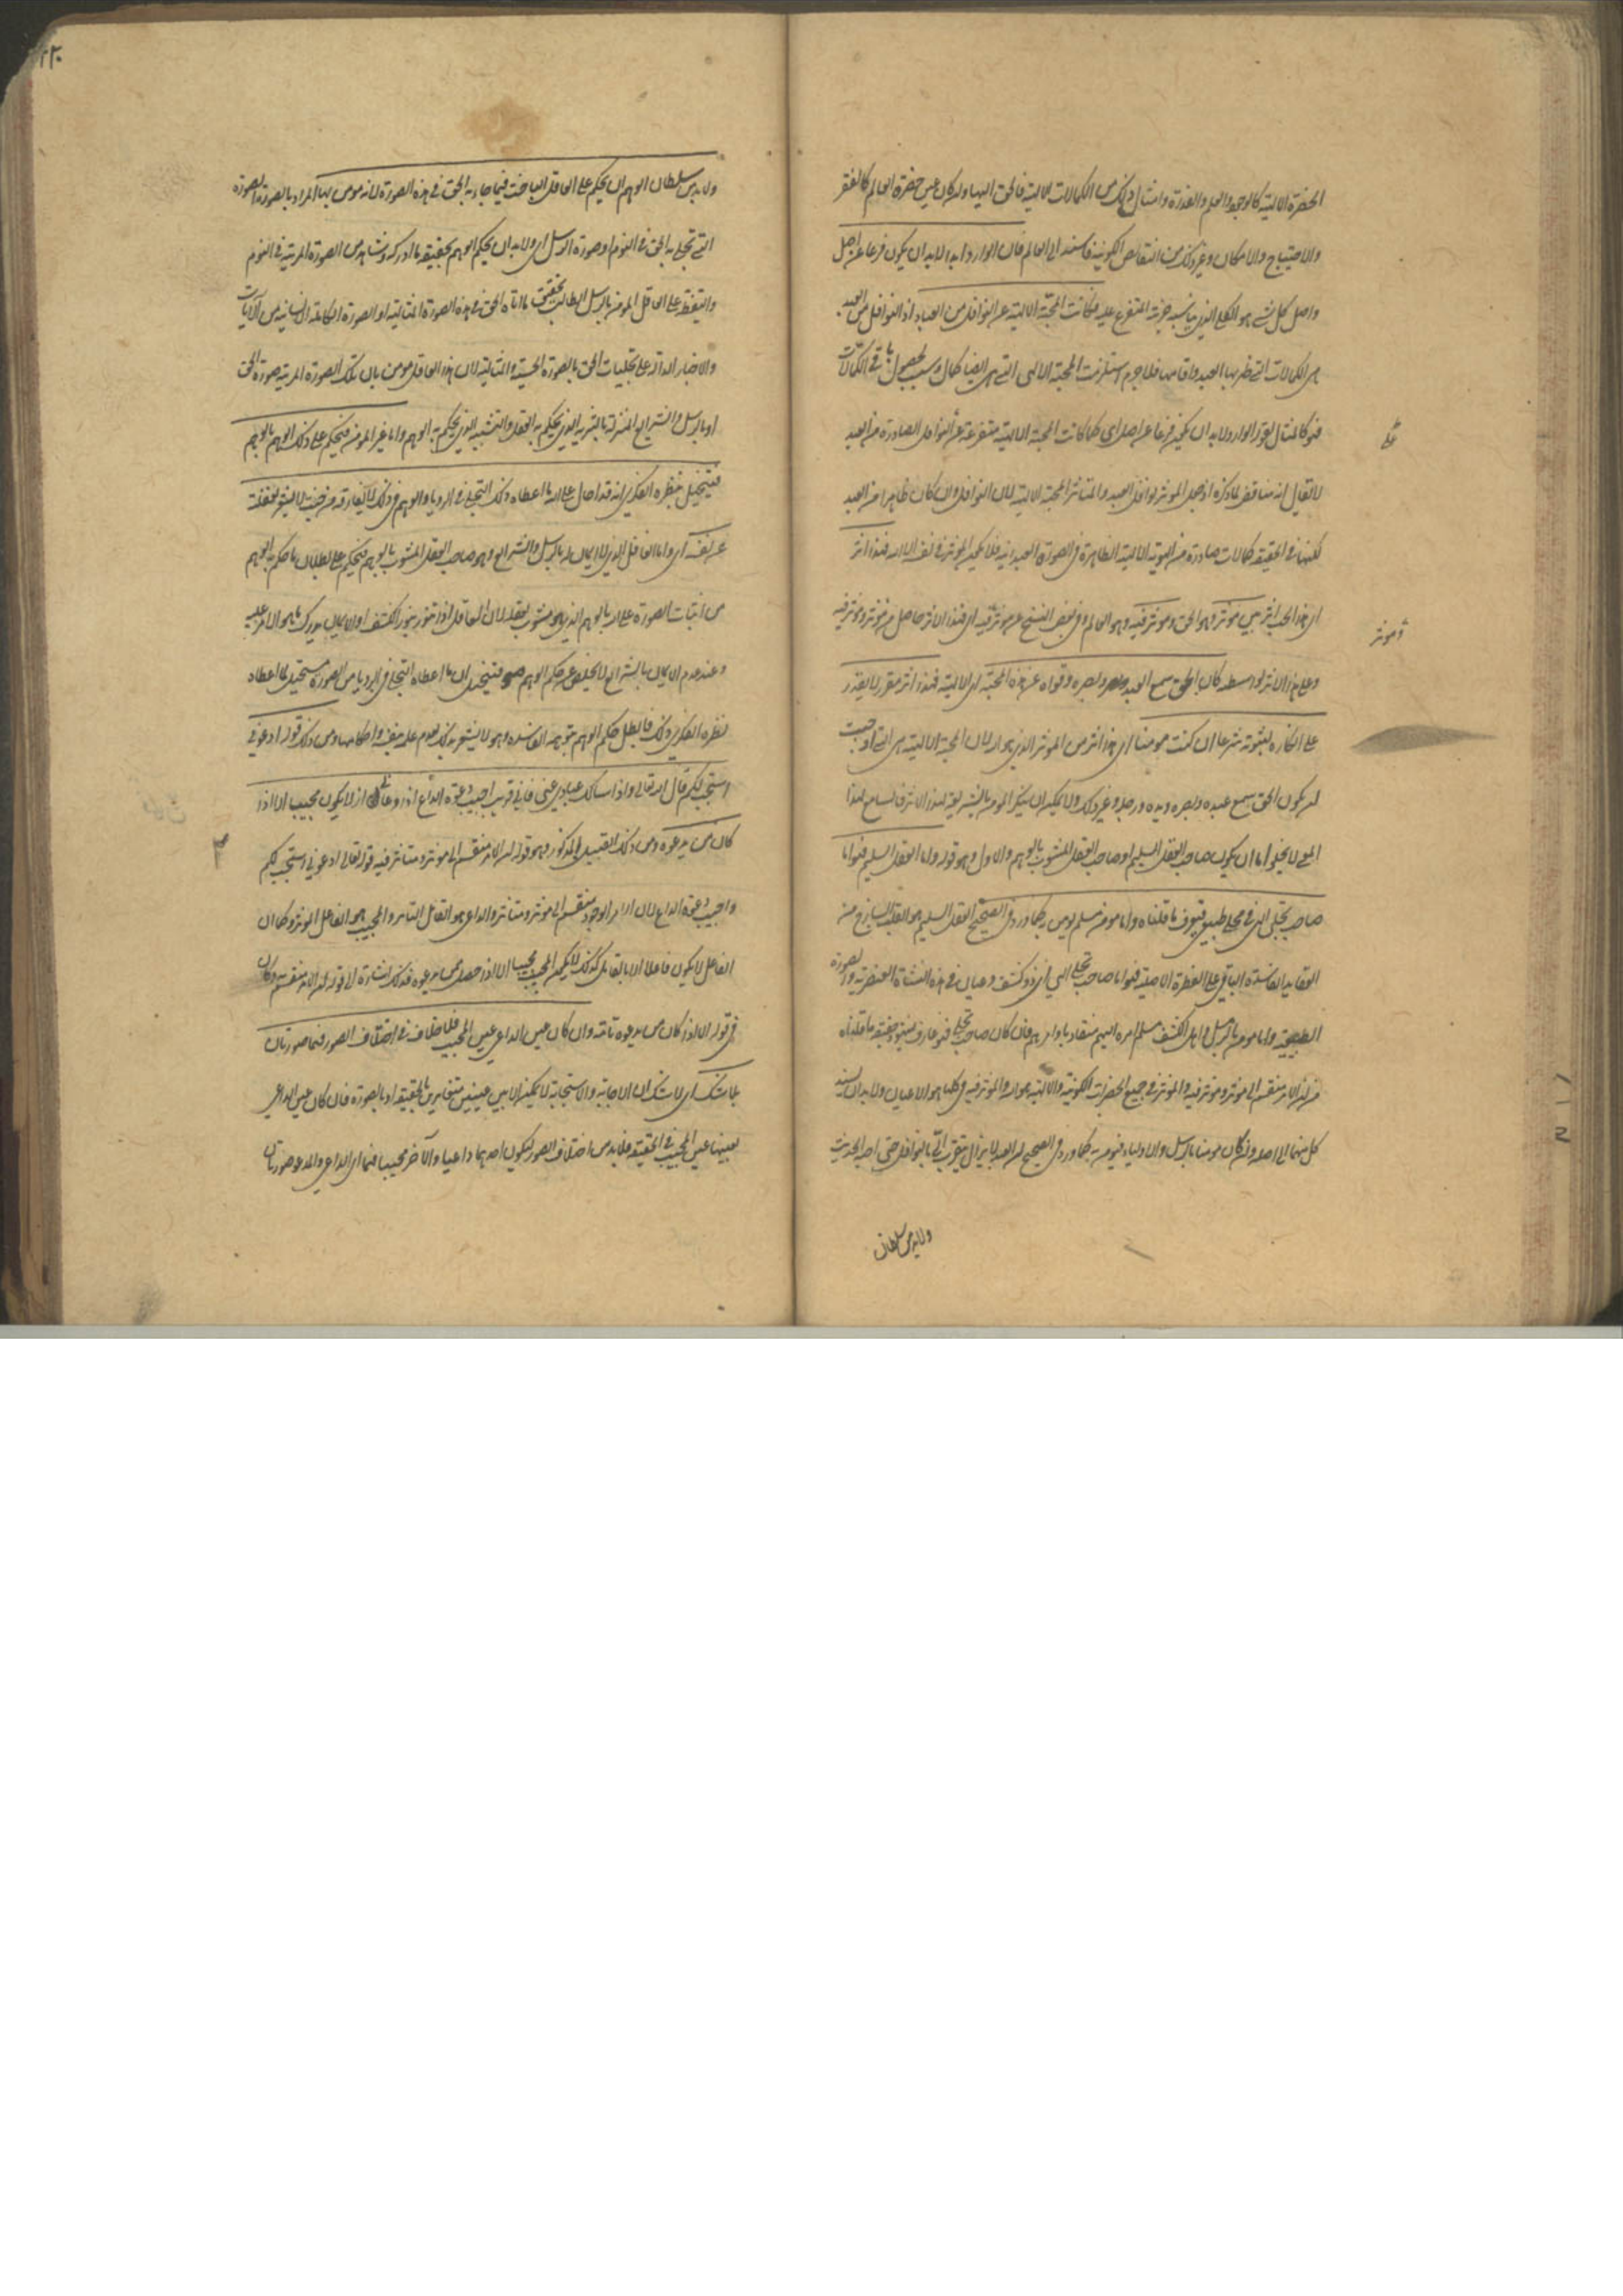 الحضرة الالهية كالوجود والعلم والقدرة وامثال ذلك من الكمالات الالهية فالحق اليها وان كان عين حضرة العالم كالفقر
والاحتياج والامكان وغير ذلك من النقائص الكونية فاسند الى العالم فان الوارد ابدا لابد ان يكون فرعا عن اصل
واصل كل شئ هو الكلي الذي يناسبه جزئية المتفرع عليه كانت المحبة الالهية عن النوافل من العباد اذ النوافل من العبد
هي الكمالات التي ظهر بها العبد واقامها فلا جرم استلزمت المحبة الالهى التي هي ايضا كمال وسبب لحصول باقي الكمالات
فهو كالمثال لقوله الوارد ولابد ان يكون فرعا عن اصل اي كما كانت المحبة الالهية متفرعة عن النوافل الصادرة من العبد
لا يقال انه مناقض لما ذكره اذ جعل الموثر نوافل العبد والمتاثر المحبة الالهية لان النوافل وان كان ظاهرا من العبد
لكنها في الحقيقة كمالات صادرة من الهوية الالهية الظاهرة في الصورة العبدانية فلا يكون الموثر في نفسه الا الله فهذا اثر
اي هذا الحب اثر بين موثر وهو الحق وموثر فيه وهو العالم وفي بعض النسخ عن موثر فيه اي فهذا الاثر حاصل من موثر وموثر فيه
وعلى هذا الاثر بواسطه كان الحق سمع العبد وبصره وقواه عن هذه المحبة اي الالهية فهذا اثر مقرر لا يقدر
على انكاره لثبوته شرعا ان كنت مومنا اي هذا اثر من الموثر الذي هو الله لان المحبة الالهية هي التي اوجبت
ان يكون الحق سمع عبده وبصره ويده ورجله وغير ذلك ولا يمكن ان ينكر المومن بالشريعة لهذا الاثر فالسامع لهذا
المعنى لا يخلو اما ان يكون صاحب العقل السليم او صاحب العقل المشوب بالوهم والاول هو قوله واما العقل السليم فهو اما
صاحب تجلى الهي في مجلى طبيعي فيعرف ما قلناه واما مومن مسلم يومن به كما ورد في الصحيح العقل السليم هو القلب الساذج من
العقايد الفاسدة الباقي على الفطرة الاصلية فهو اما صاحب تجلى الهي اي ذو كشف وعيان في هذه النشاة العنصرية والصورة
الطبيعية واما مومن بالرسل واهل الكشف مسلم امره اليهم منقاد باوامرهم فان كان صاحب تجلى فهو عارف حقيقة ما قلناه
من ان الامر منقسم الى موثر وموثر فيه والموثر في جميع الحضرات الكونية والالهية هو الله والموثر فيه في كلها هو الاعيان ولابد ان يسند
كل منهما الى اصله وان كان مومنا بالرسل والاولياء فيومن به كما ورد في الصحيح ان العبد لا يزال يتقرب الي بالنوافل حتى احبه الحديث
ولابد من سلطان
وموثر
ولابد من سلطان الوهم ان يحكم على العاقل الباحث فيما جاء به الحق في هذه الصورة لانه مومن بها المراد بالصورة الصورة
التي تجلى به الحق في النوم او صورة الرسل اي ولابد ان يحكم الوهم بحقيقة ما ادركه وشاهد من الصورة المرئية في النوم
واليقظة على العاقل المومن بالرسل الطالب لحقيقة ما اتاه الحق في هذه الصورة المثالية او الصورة الكاملة الانسانية من الآيات
والاخبار الدالة على تجليات الحق بالصورة الحسية والمثالية لان هذا العاقل مومن بان تلك الصورة المرئية صورة الحق
او بالرسل والشرايع المنزلة بالتنزيه الذي يحكم به العقل والتشبيه الذي يحكم به الوهم واما غير المومن فيحكم على ذلك الوهم بالوهم
فيتخيل بنظره الفكري انه قد احال على الله ما اعطاه ذلك التجلي في الرويا والوهم في ذلك لا يفارقه من حيث لا يشعر لغفلته
عن نفسه اي واما العاقل الذي لا ايمان له بالرسل والشرايع وهو صاحب العقل المشوب بالوهم فيحكم على بطلان ما حكم به الوهم
من اثبات الصورة على الله بالوهم الذي هو مشوب بعقله لان العاقل اذا تنور بنور الكشف او الايمان يدرك ما هو الامر عليه
وعند عدم الايمان بالشرايع لا يخلص عن حكم الوهم فيتخيل ان ما اعطاه التجلي في الرويا من الصورة مستحيل لما اعطاه
نظره الفكري ذلك فابطل حكم الوهم بتوهمه الفاسد وهو لا يشعر بذلك لعدم علمه بنفسه واحكامها ومن ذلك قوله ادعوني
استجب لكم قال الله تعالى واذا سالك عبادي عني فاني قريب اجيب دعوة الداع اذا دعان اذ لا يكون مجيبا الا اذا
كان من يدعوه ومن ذلك القبيل المذكور وهو قوله ان الامر منقسم الى موثر ومتاثر فيه قوله تعالى ادعوني استجب لكم
واجيب دعوة الداع لان امر الوجود منقسم الى موثر ومتاثر والداعي هو القابل المتاثر والمجيب هو الفاعل الموثر وكما ان
الفاعل لا يكون فاعلا الا بالقابل كذلك لا يكون المجيب مجيبا الا اذا حصل من يدعوه فذلك اشارة الى قوله ان الامر منقسم وكان
في قوله الا اذا كان من يدعوه تامة وان كان عين الداعي عين المجيب فلا خلاف في اختلاف الصور فهما صورتان
بلا شك اي لا شك ان الاجابة والاستجابة لا يمكن الا بين عينين متغايرين بالحقيقة او بالصورة فان كان عين الداعي
بعينها عين المجيب في الحقيقة فلابد من اختلاف الصور ليكون احدهما داعيا والآخر مجيبا فهما اي الداعي والمدعو صورتان